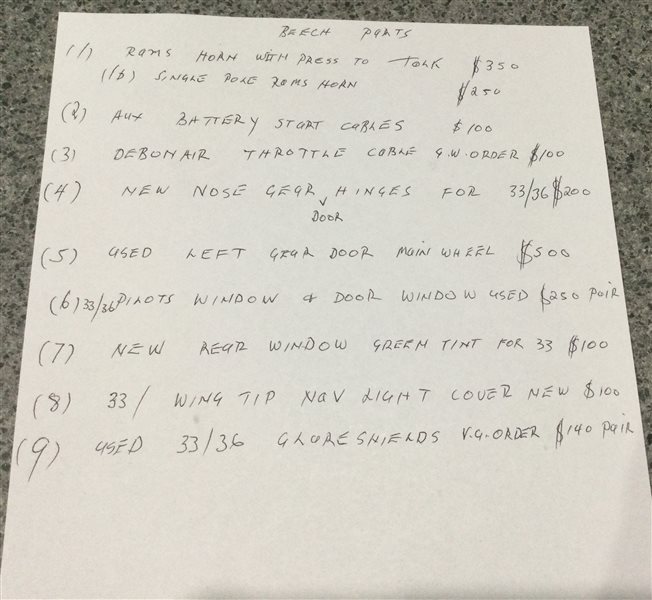 BEECH PARTS
(1) RAMS HORN WITH PRESS TO TALK $350
(1b) SINGLE POLE RAMS HORN $250
(2) AUX BATTERY START CABLES $100
(3) DEBONAIR THROTTLE CABLE G.W.ORDER $100
(4) NEW NOSE GEAR HINGES FOR 33/36 $200
DOOR
(5) USED LEFT GEAR DOOR MAIN WHEEL $500
(6) 33/36 PILOTS WINDOW & DOOR WINDOW USED $250 PAIR
(7) NEW REAR WINDOW GREEN TINT FOR 33 $100
(8) 33/ WING TIP NAV LIGHT COVER NEW $100
(9) USED 33/36 GLARESHIELDS V.G.ORDER $140 PAIR